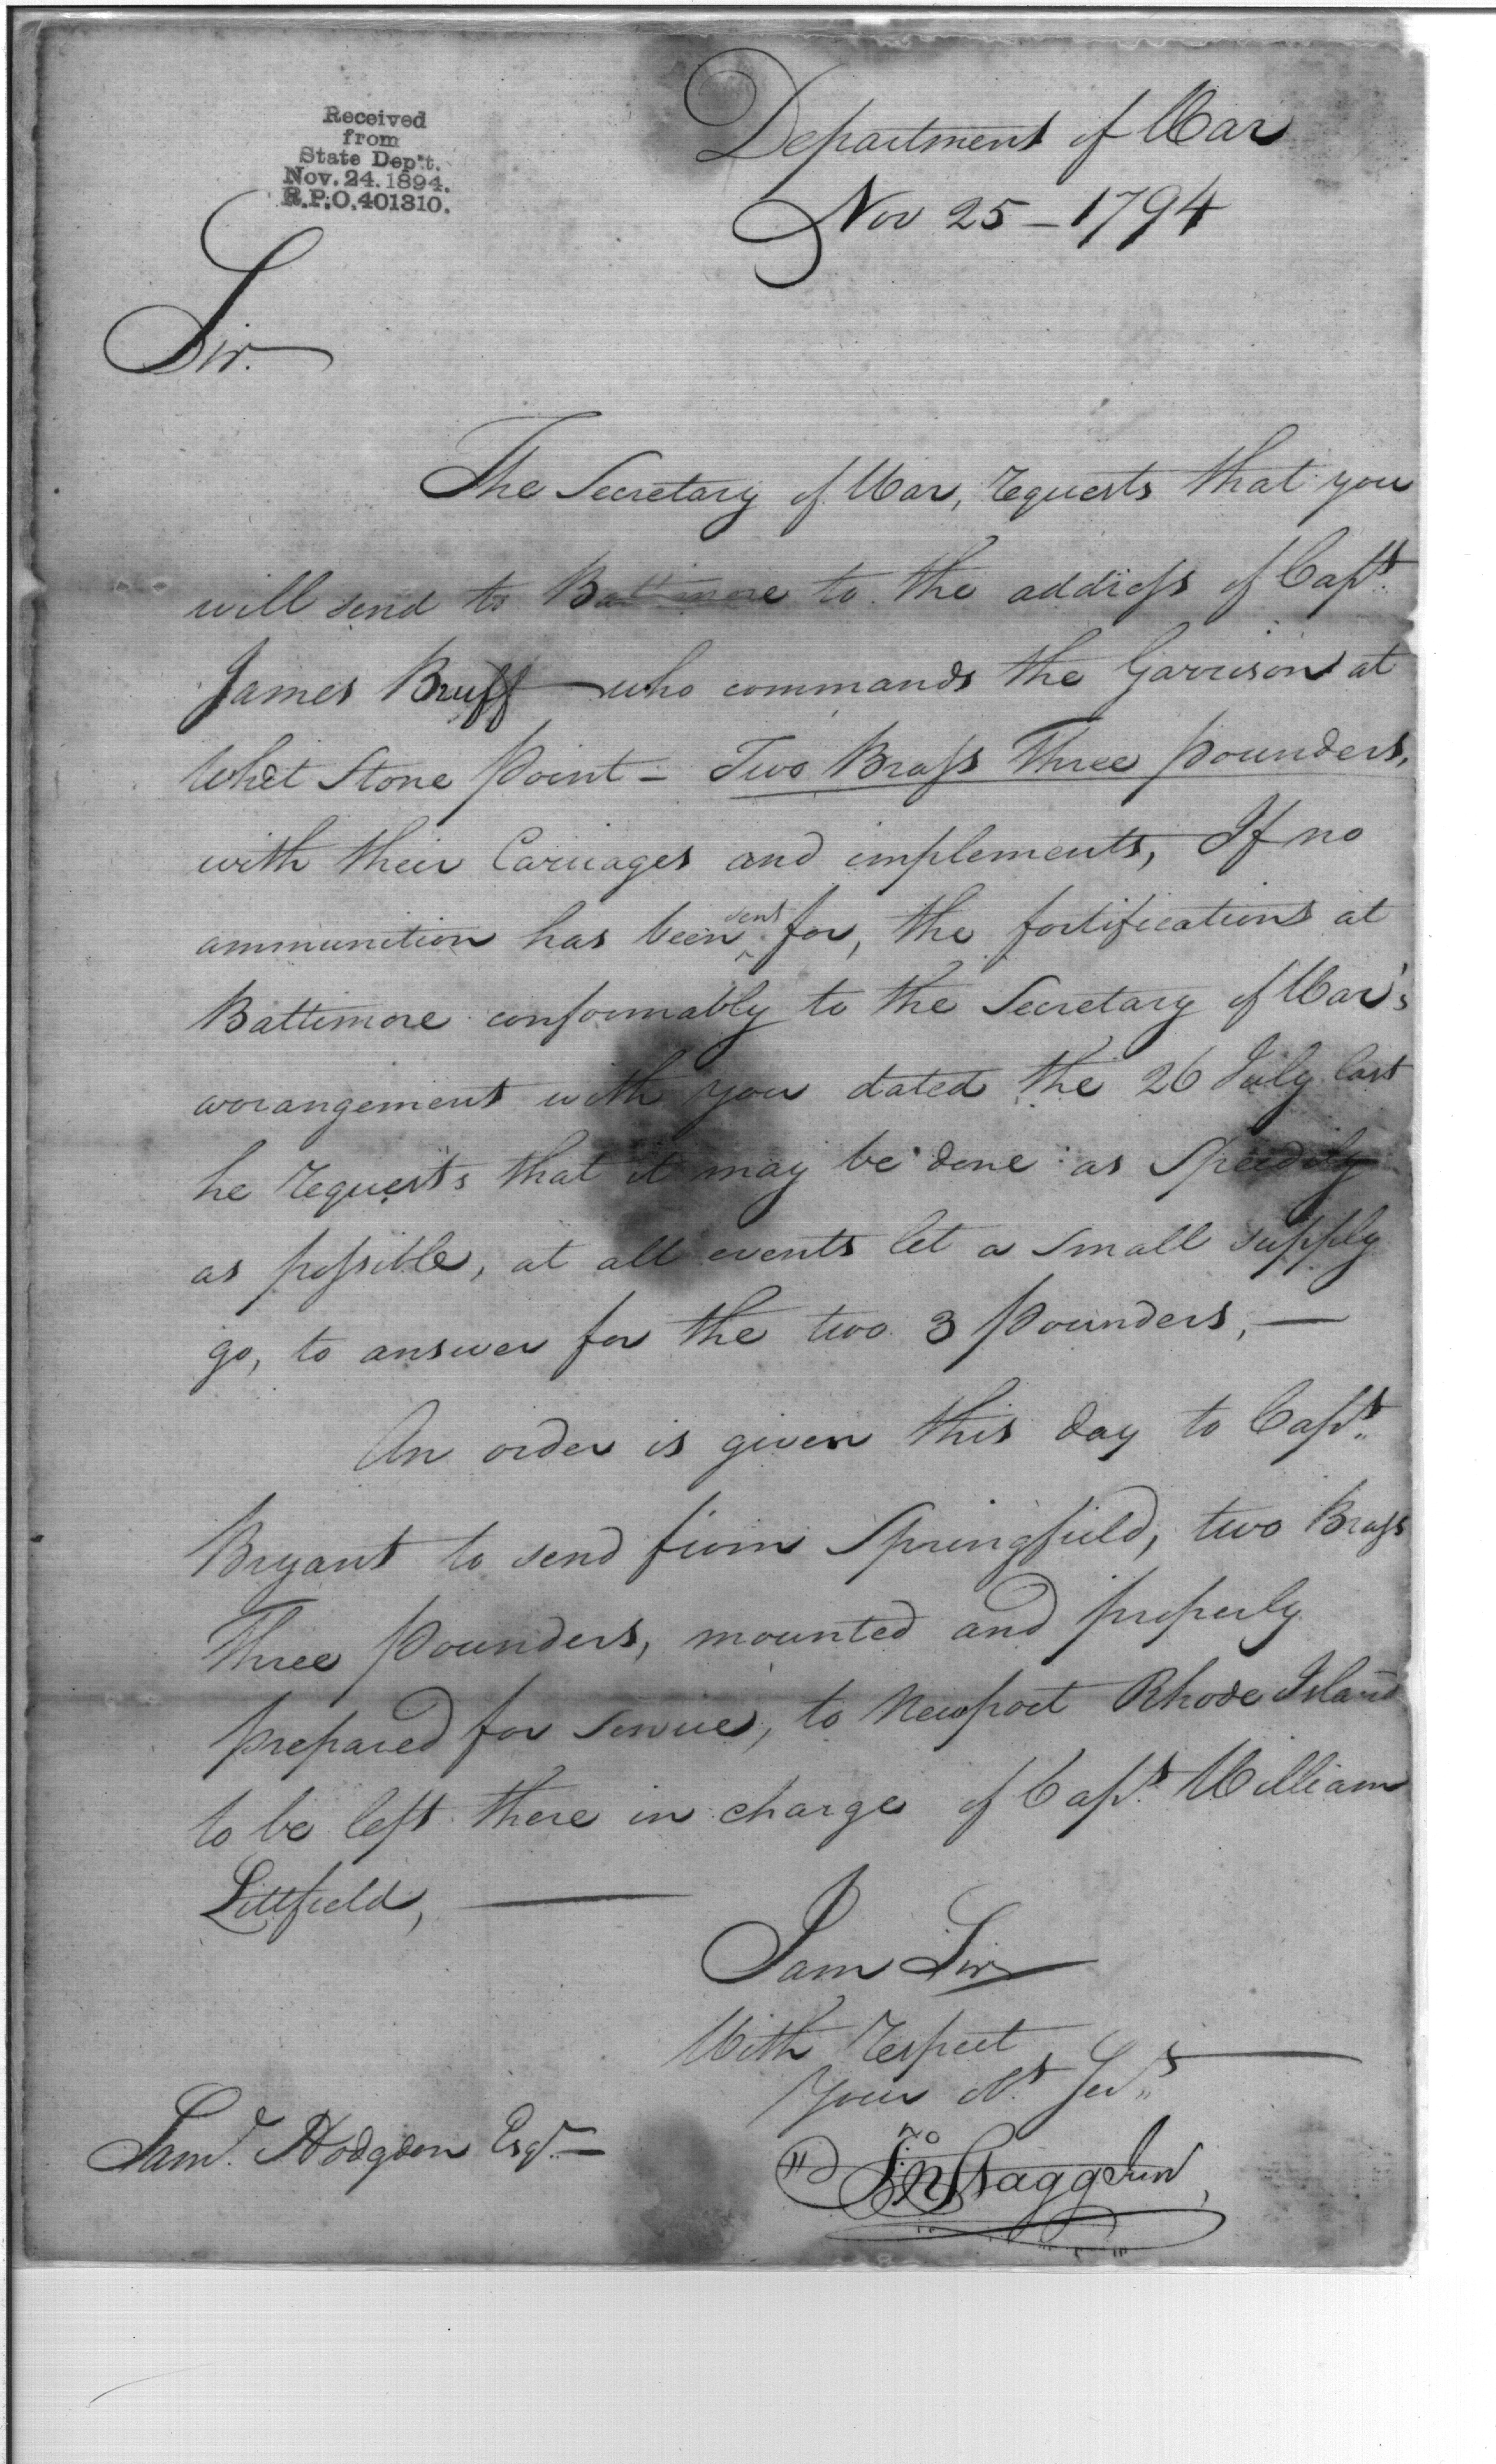 Received
from
State Dep't.
Nov. 24. 1894.
R.P.O. 401310.
Department of War
Nov 25 - 1794
Sir.
The Secretary of War, requests that you
will send to Baltimore to the address of Capt.
James Bruff - who commands the Garrison at
Whet Stone Point - Two Brass Three pounders,
with their Carriages and implements, If no
ammunition has been sent for, the fortifications at
Baltimore conformably to the Secretary of War's
arrangement with you dated the 26 July last
he requests that it may be done as Speedily
as possible, at all events let a small supply
go, to answer for the two 3 pounders, —
An order is given this day to Capt.
Bryant to send from Springfield, two Brass
Three pounders, mounted and properly
prepared for service, to Newport Rhode Island
to be left there in charge of Capt. William
Littfield, —
I am Sir
With respect
Your Ob. Servt.
Jno Stagg Jun
Saml. Hodgdon Esqr. —